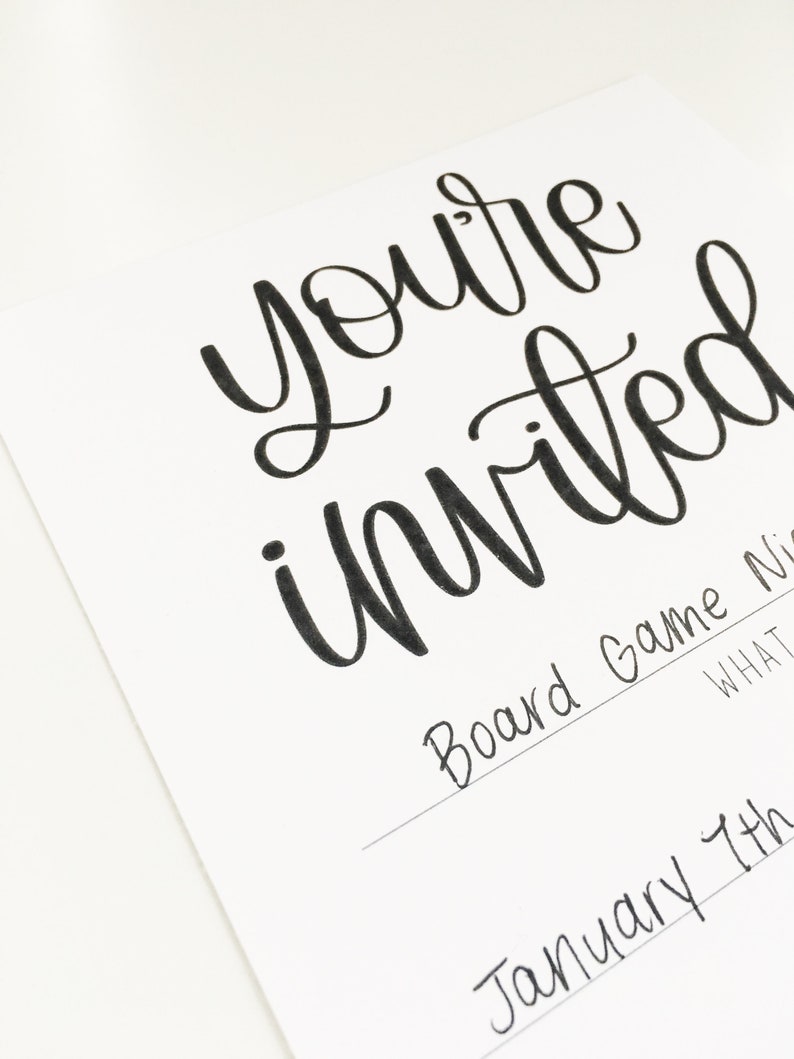 you're
invited
Board Game Nig
WHAT
January 7th